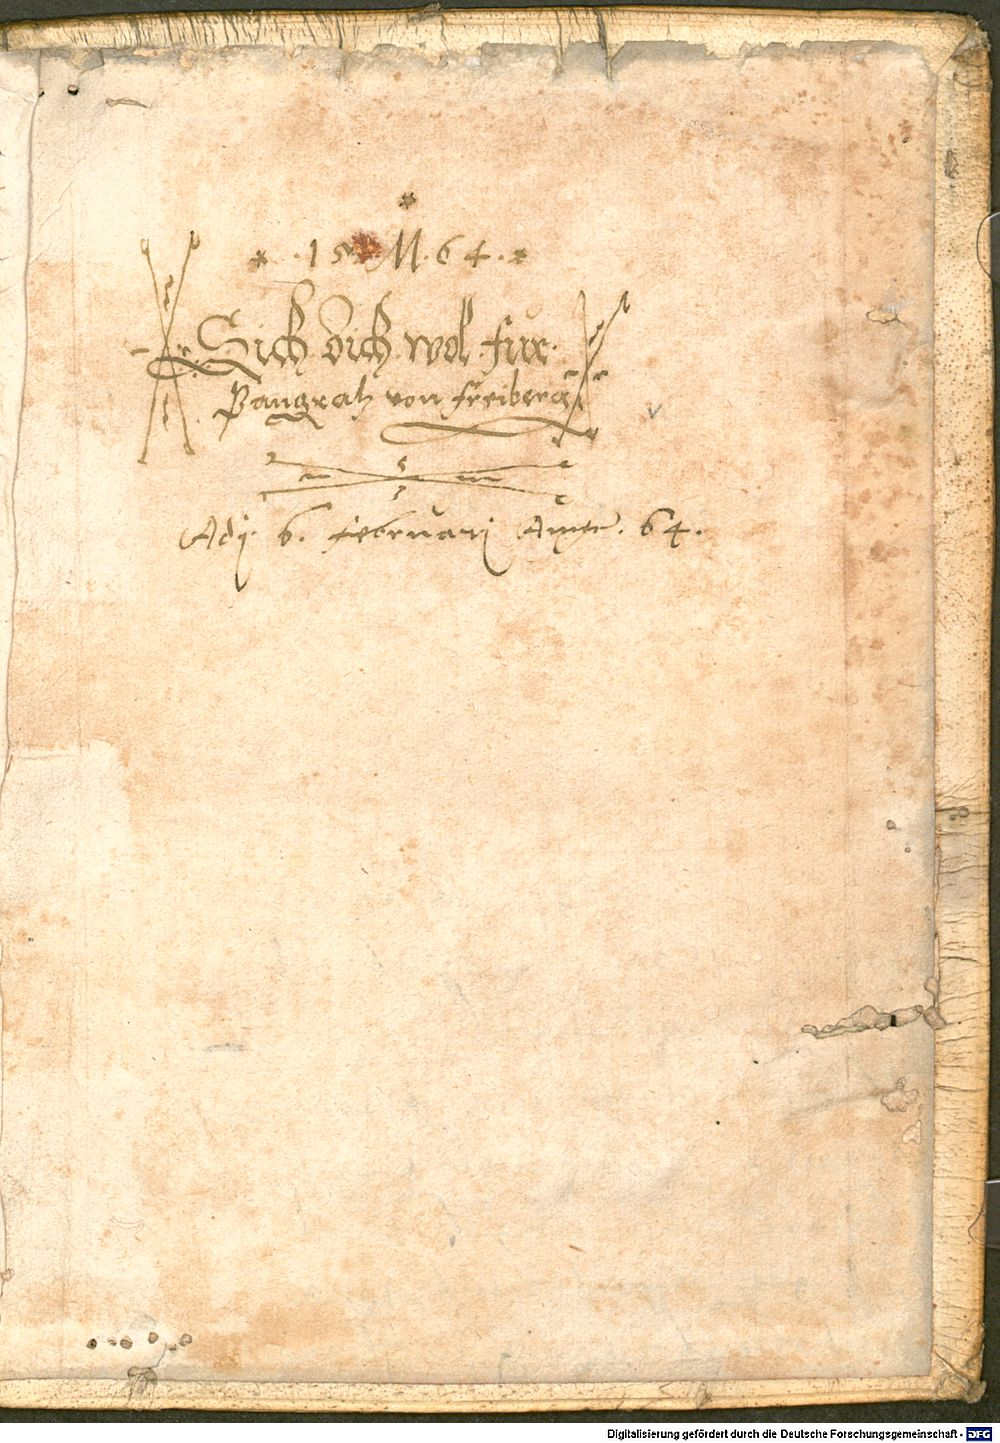 * . 15 M . 64 . *
Sich dich wol für.
Pangratz von Freiberg
Adj. 6. februarj . 64 .
Digitalisierung gefördert durch die Deutsche Forschungsgemeinschaft - DFG